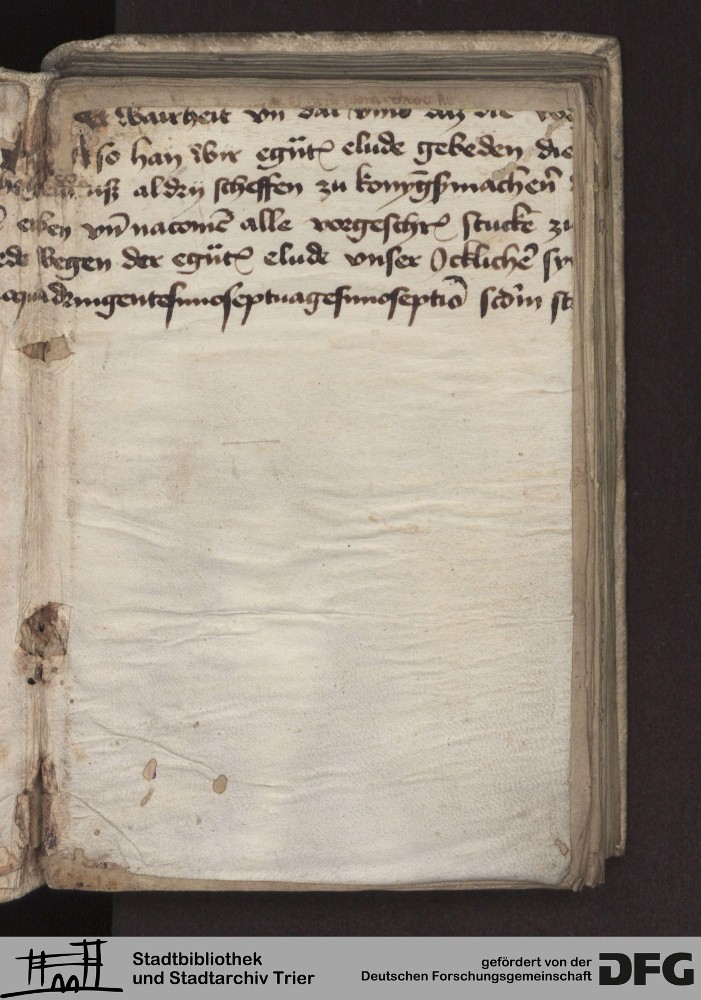 Warheit vn dat vmb daz die
Also han wir egūt elude gebeden die
uß aldrij scheffen zu konyḡsmachen̄
erben vn̄ nacomē alle vorgeschr stucke zu
wegen der egūt elude vnser Ocklichē
quadringentesimoseptuagesimoseptiō scdm̄ st
Stadtbibliothek
und Stadtarchiv Trier
gefördert von der
Deutschen Forschungsgemeinschaft
DFG